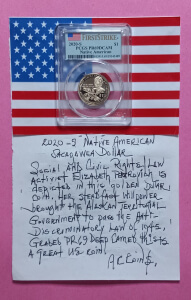 FIRSTSTRIKE
2020-S $1
PCGS PR69DCAM
Native American
2020-S "NATIVE AMERICAN
SACAGAWEA DOLLAR
SOCIAL AND CIVIC RIGHTS/LAW
ACTIVIST ELIZABETH PERATROVICH IS
DEPICTED IN THIS GOLDEN DOLLAR
COIN. HER STEADFAST WILLPOWER
BROUGHT THE ALASKAN TERRITORIAL
GOVERNMENT TO PASS THE ANTI-
DISCRIMINATORY LAW OF 1945.
GRADED PR69 DEEP CAMEO THIS IS
A GREAT US COIN!
A C COINS